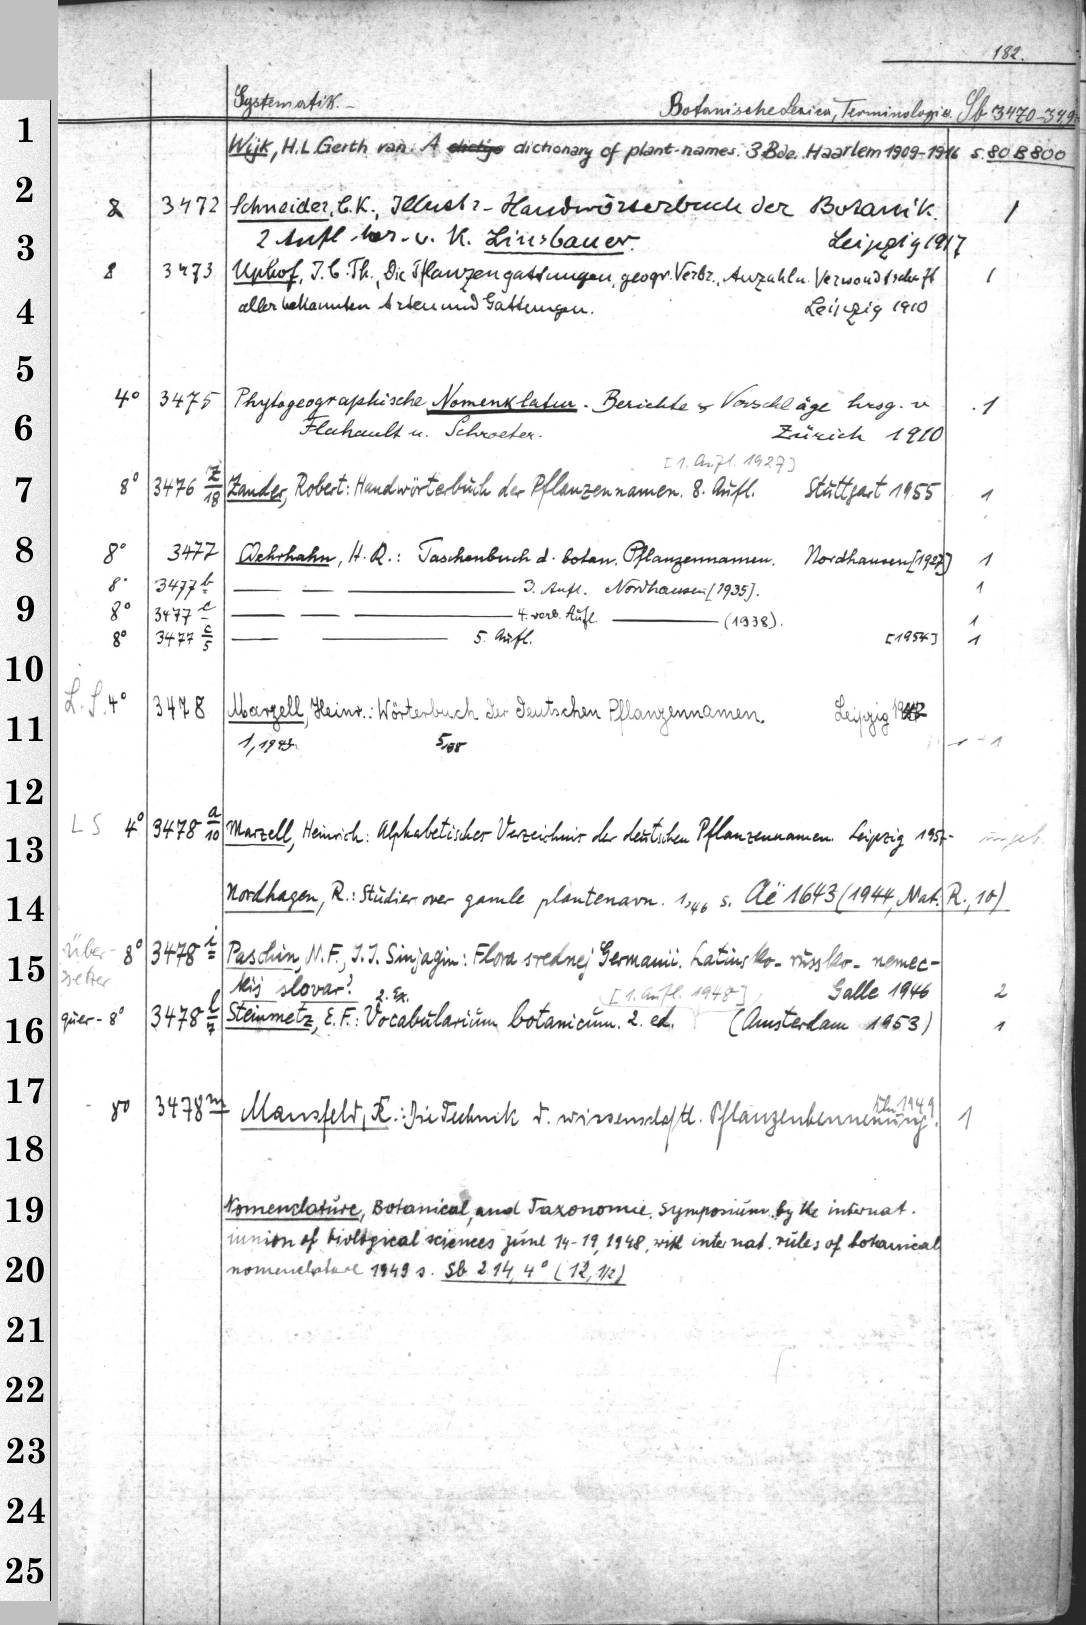 182.
Systematik.- Botanische Lexica, Terminologie. Sb 3470-349
1
Wijk, H.L. Gerth van: A dictionary of plant-names. 3 Bde. Haarlem 1909-1916 s. 80 B 800
2
8 3472 Schneider, C.K., Illustr- Handwörterbuch der Botanik. 1
3
2 Aufl. her. v. K. Linsbauer. Leipzig 1917
8 3473 Uphof, J.C.Th., Die Pflanzengattungen, geogr. Verbr., Anzahl u. Verwandtschaft 1
4
aller bekannten Arten und Gattungen. Leipzig 1910
5
4° 3475 Phytogeographische Nomenklatur. Berichte & Vorschläge hrsg. v 1
6
Flahault u. Schroeter. Zürich 1910
[1. Aufl. 1927]
7
8° 3476 Z/18 Zander, Robert: Handwörterbuch der Pflanzennamen. 8. Aufl. Stuttgart 1955 1
8
8° 3477 Wehrhahn, H. R.: Taschenbuch d. botan. Pflanzennamen. Nordhausen [1927] 1
8° 3477 b — — — 3. Aufl. Nordhausen [1935]. 1
9
8° 3477 c — — — 4. verb. Aufl. — (1938). 1
8° 3477 c/5 — — 5. Aufl. [1954] 1
10
L.S. 4° 3478 Marzell, Heinr.: Wörterbuch der deutschen Pflanzennamen. Leipzig
11
1, 1943 5/58 1 - 1
12
L S 4° 3478 a/10 Marzell, Heinrich: Alphabetisches Verzeichnis der deutschen Pflanzennamen. Leipzig 1957- ungeb.
13
14
Nordhagen, R.: Studier over gamle plantenavn. 1,46 s. Aë 1643 (1944, Nat. R., 10)
Über- 8° 3478 i Paschin, N.F., I.I. Sinjagin: Flora srednej Germanii. Latinsko- russko- nemec-
15
setzer kij slovar'. [1. Aufl. 1948] Galle 1946 2
2. Ex.
16
quer- 8° 3478 l/7 Steinmetz, E.F.: Vocabularium botanicum. 2. ed. (Amsterdam 1953) 1
17
Bln. 1949
8° 3478 m Mansfeld, R.: Die Technik d. wissenschaftl. Pflanzenbenennung. 1
18
19
Nomenclature, Botanical, and Taxonomie. Symposium by the internat.
union of biological sciences june 14-19, 1948, with internat. rules of botanical
20
nomenclature 1949 s. Sb 214, 4° (12, 1/2)
21
22
23
24
25